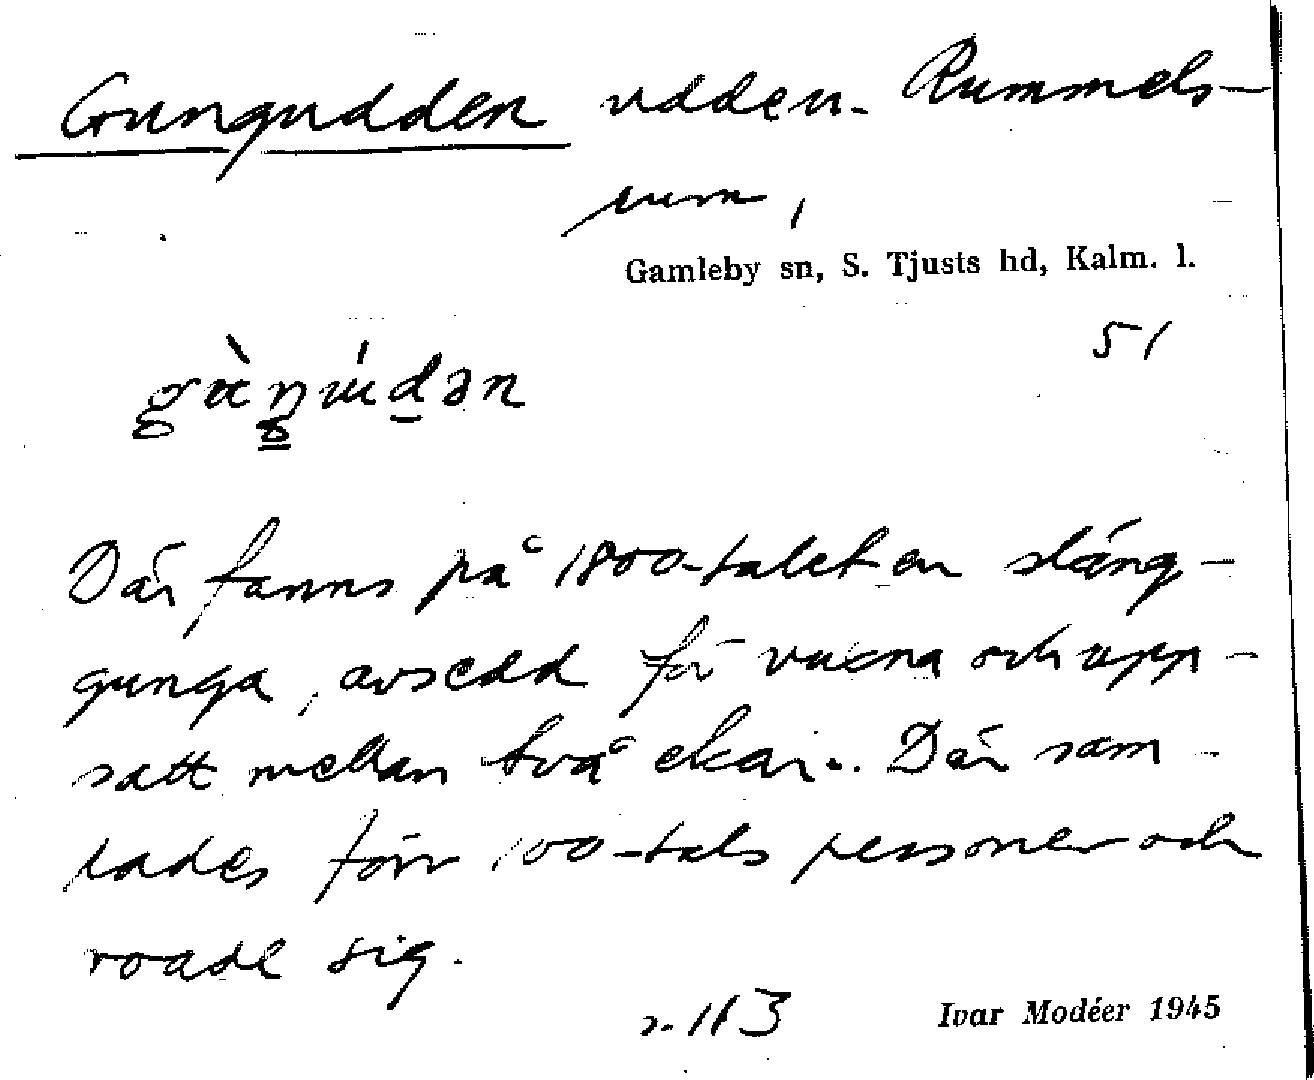 Gungudden udden. Rummels-
rum,
Gamleby sn, S. Tjusts hd, Kalm. l.
51
Där fanns på 1800-talet en släng-
gunga, avsedd för vuxna och upp-
satt mellan två ekar. Där sam-
lades förr 100-tals personer och
roade sig.
s. 113 Ivar Modéer 1945